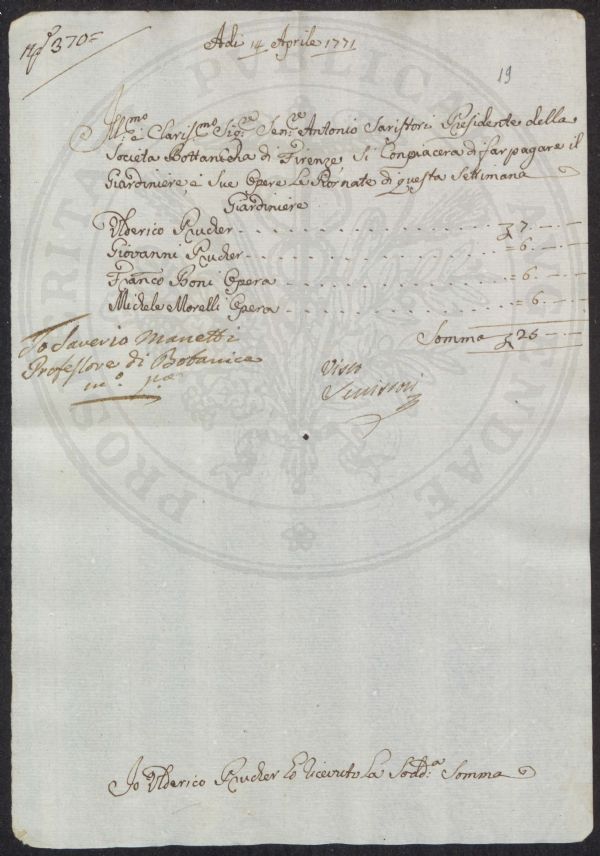 N° 370=
Adi 14 Aprile 1771
19
Ill.mo e Claris.mo Sig.re Sen.re Antonio Saristori Presidente della
Società Bottanicha di Firenze Si Conpiacera di far pagare il
Giardiniere, e Sue Opere La Giornate di questa Settimana
Giardiniere
Ulderico Prucher - - - - - - - £ 7. - -
Giovanni Prucher - - - - - - - = 6. - -
Franco Boni Opera - - - - - - - = 6. - -
Michele Moralli Opera - - - - - - - = 6. - -
Somma £ 25 - -
Io Saverio Manetti
Professore di Botanica
m.o p.a
Visto
Io Ulderico Prucher ho ricevuto La Sodd.a Somma
PROSPERITATI PUBLICAE AUGENDAE